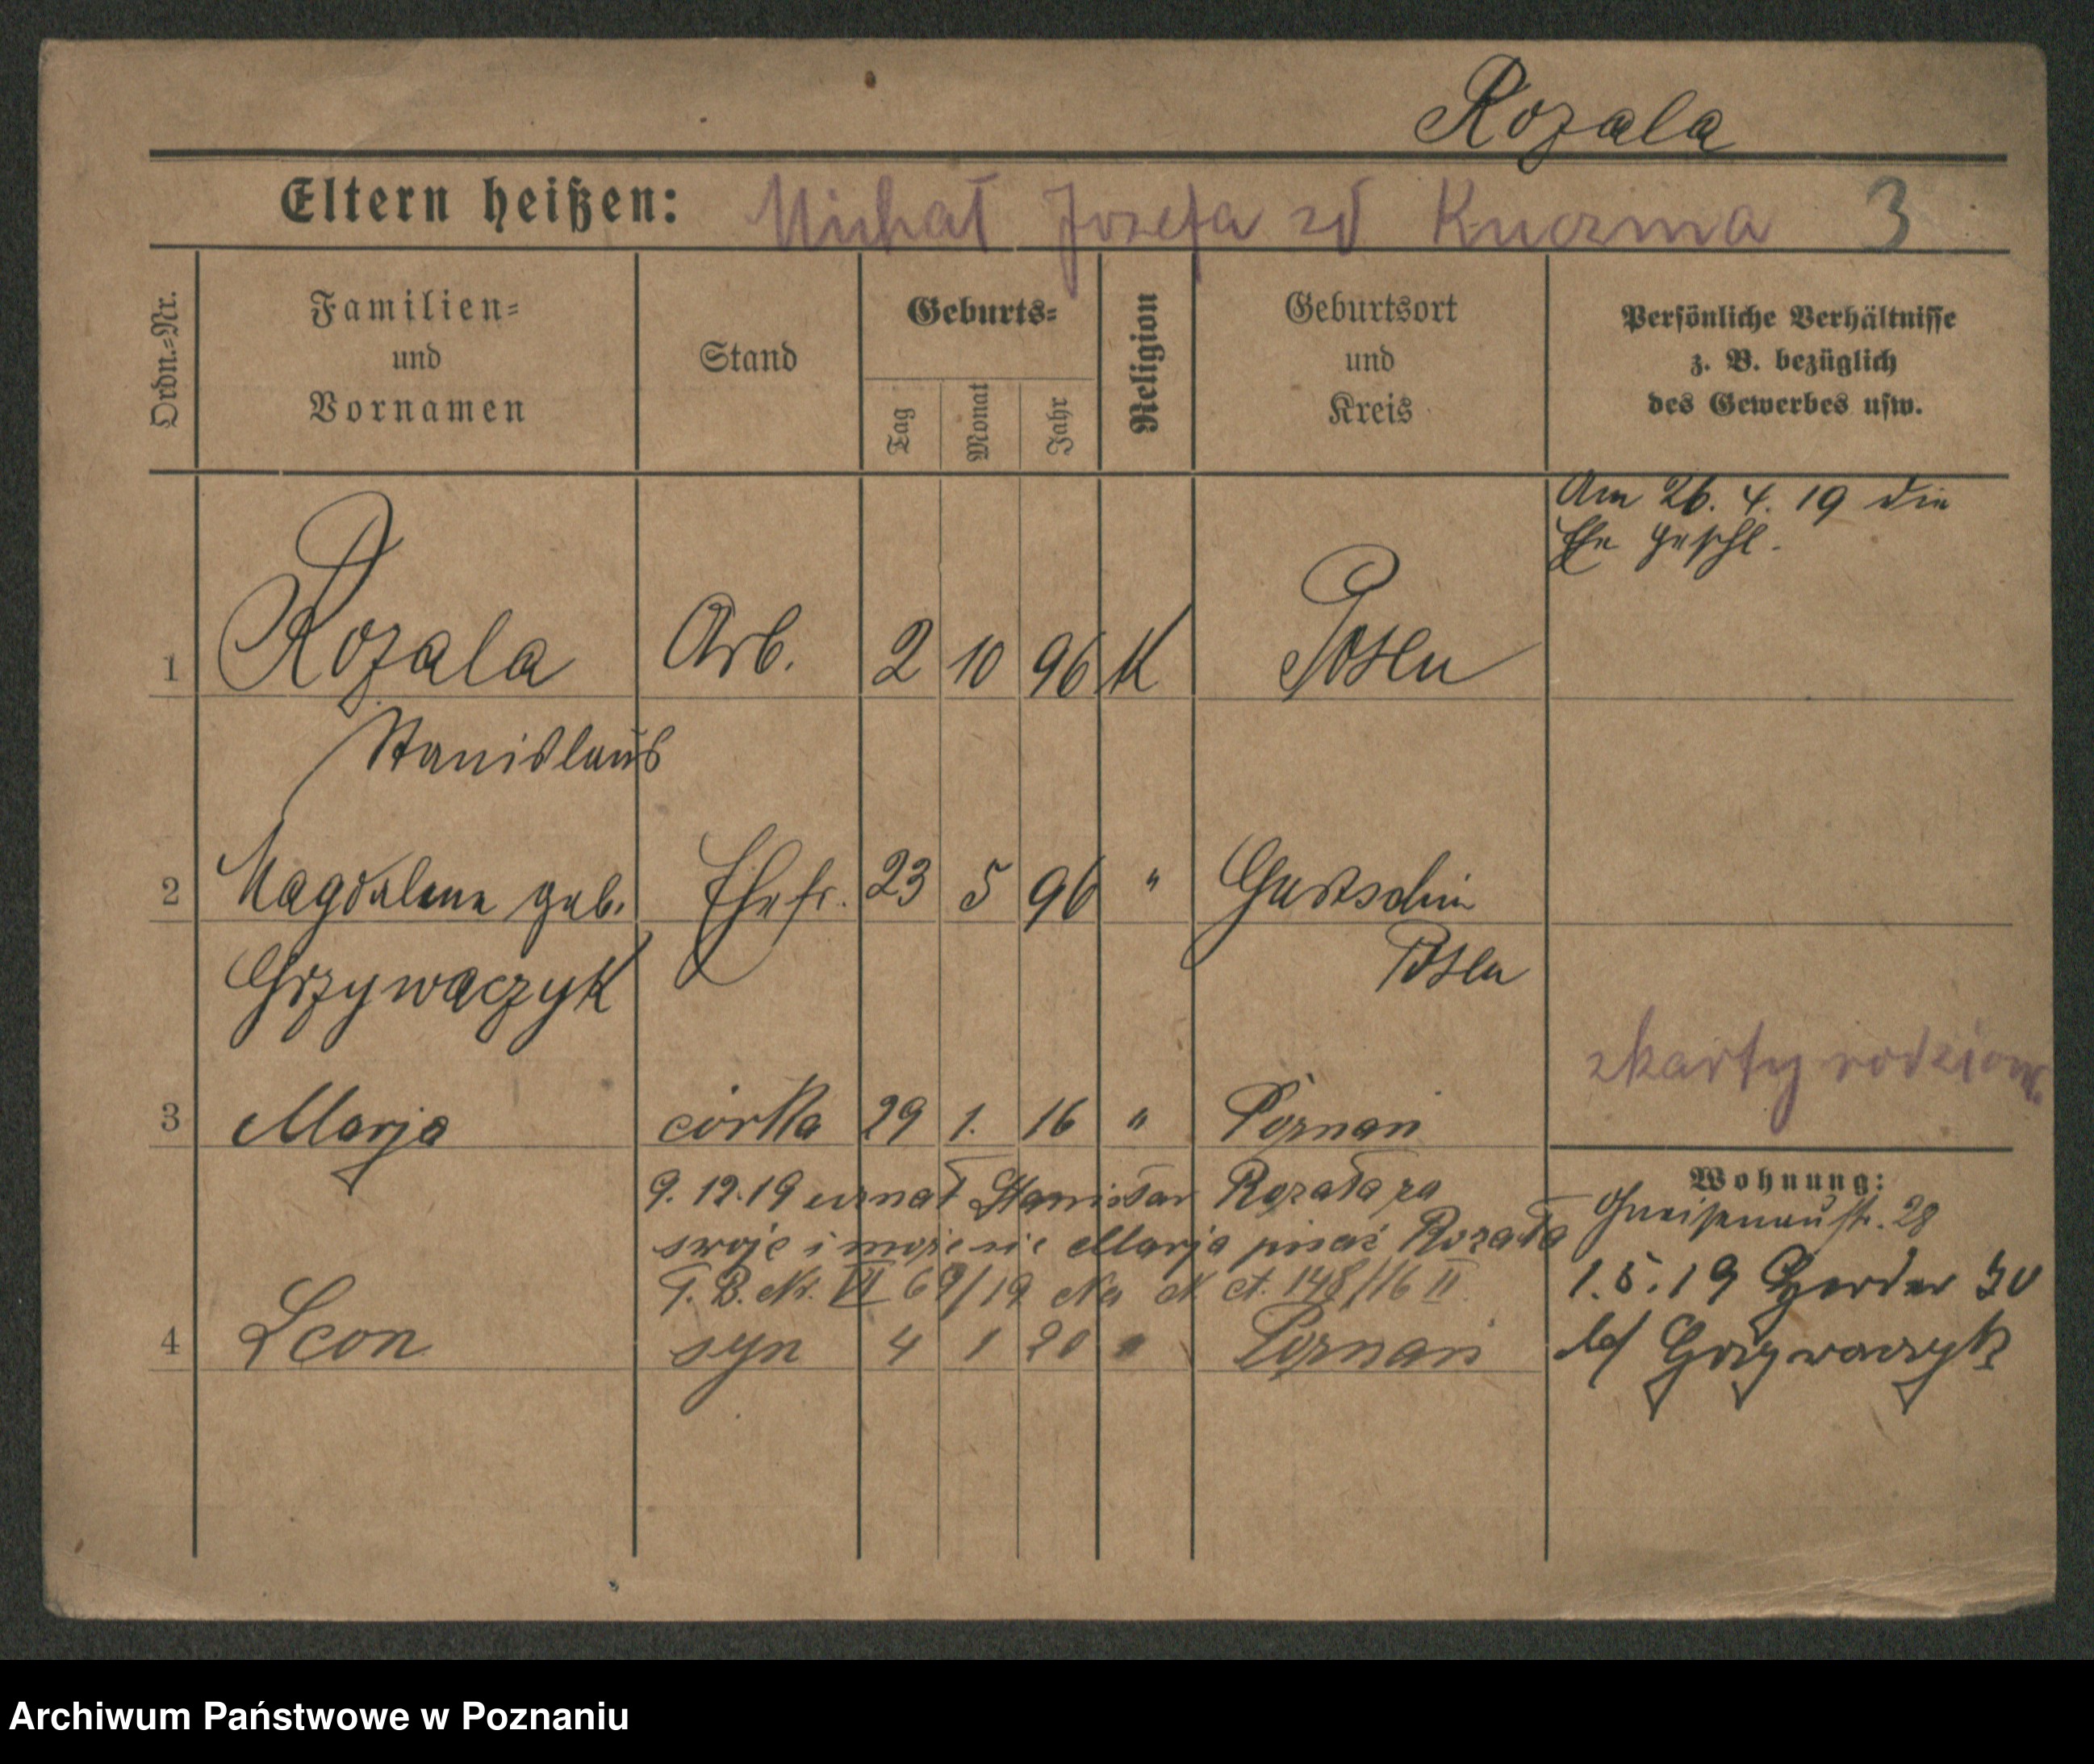 Rozala
Eltern heißen: Michał Józefa zd Kuczma 3
Ordn.-Nr.
Familien=
und
Vornamen
Stand
Geburts=
Tag
Monat
Jahr
Religion
Geburtsort
und
Kreis
Persönliche Verhältnisse
z. B. bezüglich
des Gewerbes usw.
Am 26. 4. 19 die
Ehe geschl.
1 Rozala Arb. 2 10 96 K Posen
Stanislaus
2 Magdalena geb. Ehefr. 23 5 96 " Gurtschin
Grzywaczyk Posen
z karty rodzinn.
3 Marja córka 29 1. 16 " Poznań
Wohnung:
9. 12. 19 uznał Stanisław Rozala za
Gneisenaustr. 28
swoje i może się Marja pisać Rozala
T. B. Nr. VI 69/19 Na N ct. 148/16 II
1. 5. 19 Gerder
4 Leon syn 4 1 20 " Poznań
b/ Grzywaczyk
Archiwum Państwowe w Poznaniu